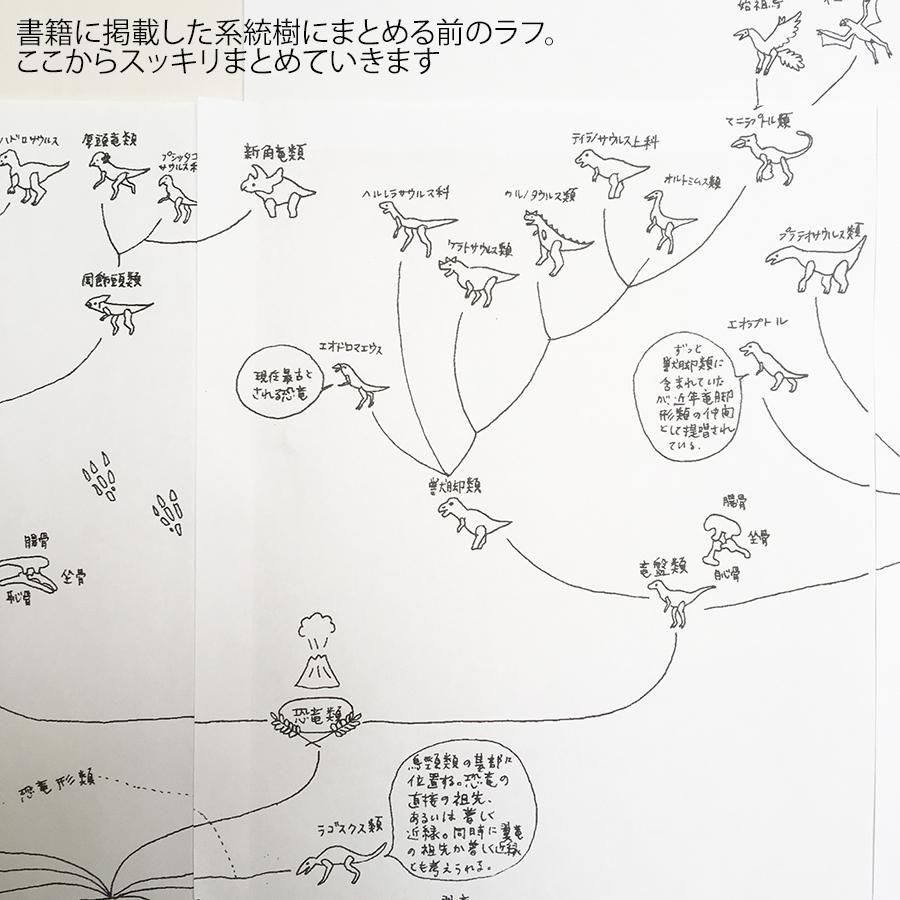 書籍に掲載した系統樹にまとめる前のラフ。
ここからスッキリまとめていきます
ハドロサウルス
厚頭竜類
プシッタコ
サウルス科
新角竜類
ヘルレラサウルス科
ケラトサウルス類
カルノタウルス類
ティラノサウルス上科
オルトミムス類
マニラプトル類
始祖鳥
プラテオサウルス類
周飾頭類
エオドロマエウス
現在最古と
される恐竜
エオラプトル
ずっと
獣脚類に
含まれていた
が近年竜脚
形類の仲間
として提唱され
ている。
獣脚類
腸骨
坐骨
恥骨
竜盤類
腸骨
坐骨
恥骨
恐竜類
恐竜形類
ラゴスクス類
鳥頸類の基部に
位置する。恐竜の
直接の祖先、
あるいは著しく
近縁。同時に翼竜
の祖先か著しく近縁
とも考えられる。